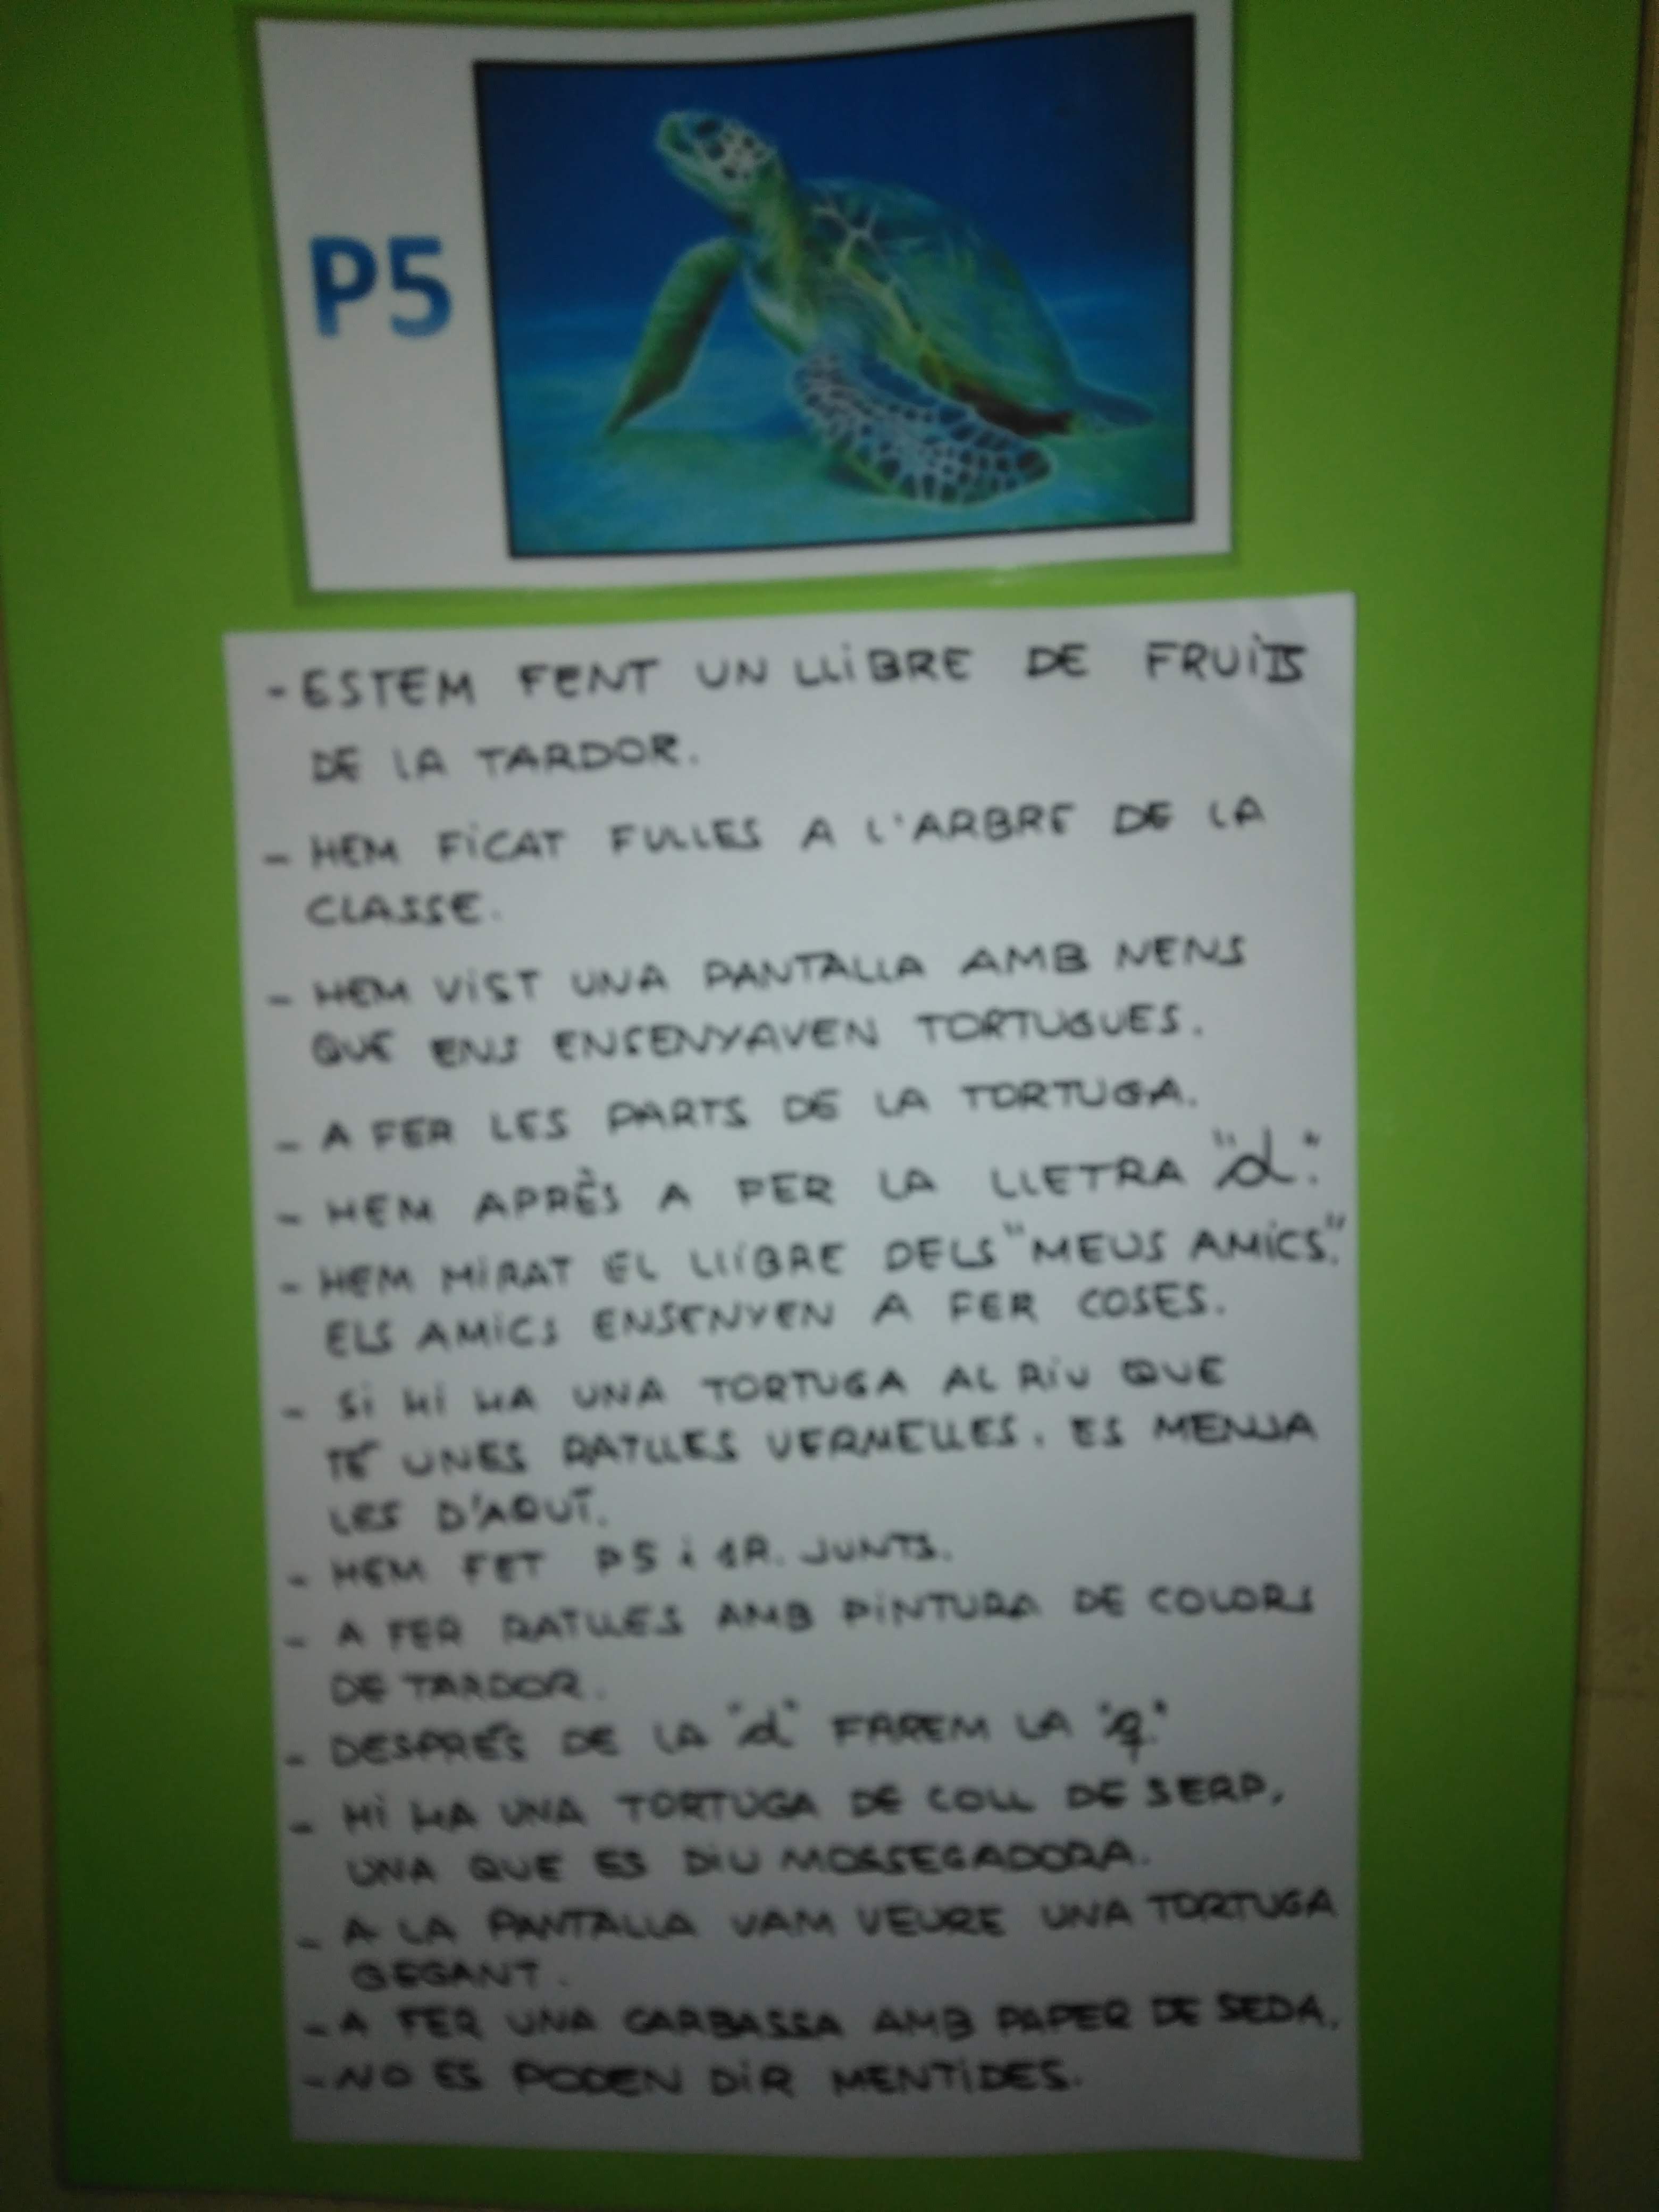 P5
- ESTEM FENT UN LLIBRE DE FRUITS
DE LA TARDOR.
- HEM FICAT FULLES A L'ARBRE DE LA
CLASSE.
- HEM VIST UNA PANTALLA AMB NENS
QUE ENS ENSENYAVEN TORTUGUES.
- A FER LES PARTS DE LA TORTUGA.
- HEM APRÈS A FER LA LLETRA "d".
- HEM MIRAT EL LLIBRE DELS "MEUS AMICS".
ELS AMICS ENSENYEN A FER COSES.
- SI HI HA UNA TORTUGA AL RIU QUE
TÉ UNES RATLLES VERMELLES, ES MENJA
LES D'AQUÍ.
- HEM FET P5 i 1R. JUNTS.
- A FER RATLLES AMB PINTURA DE COLORS
DE TARDOR.
- DESPRÉS DE LA "d" FAREM LA "q".
- HI HA UNA TORTUGA DE COLL DE SERP,
UNA QUE ES DIU MOSSEGADORA.
- A LA PANTALLA VAM VEURE UNA TORTUGA
GEGANT.
- A FER UNA CARBASSA AMB PAPER DE SEDA.
- NO ES PODEN DIR MENTIDES.